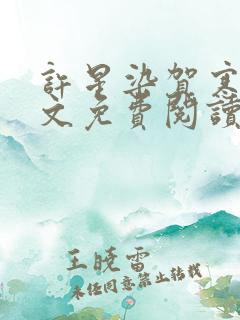 許星染賀寒
文免費閱讀
王曉雷
未任同意禁止转载